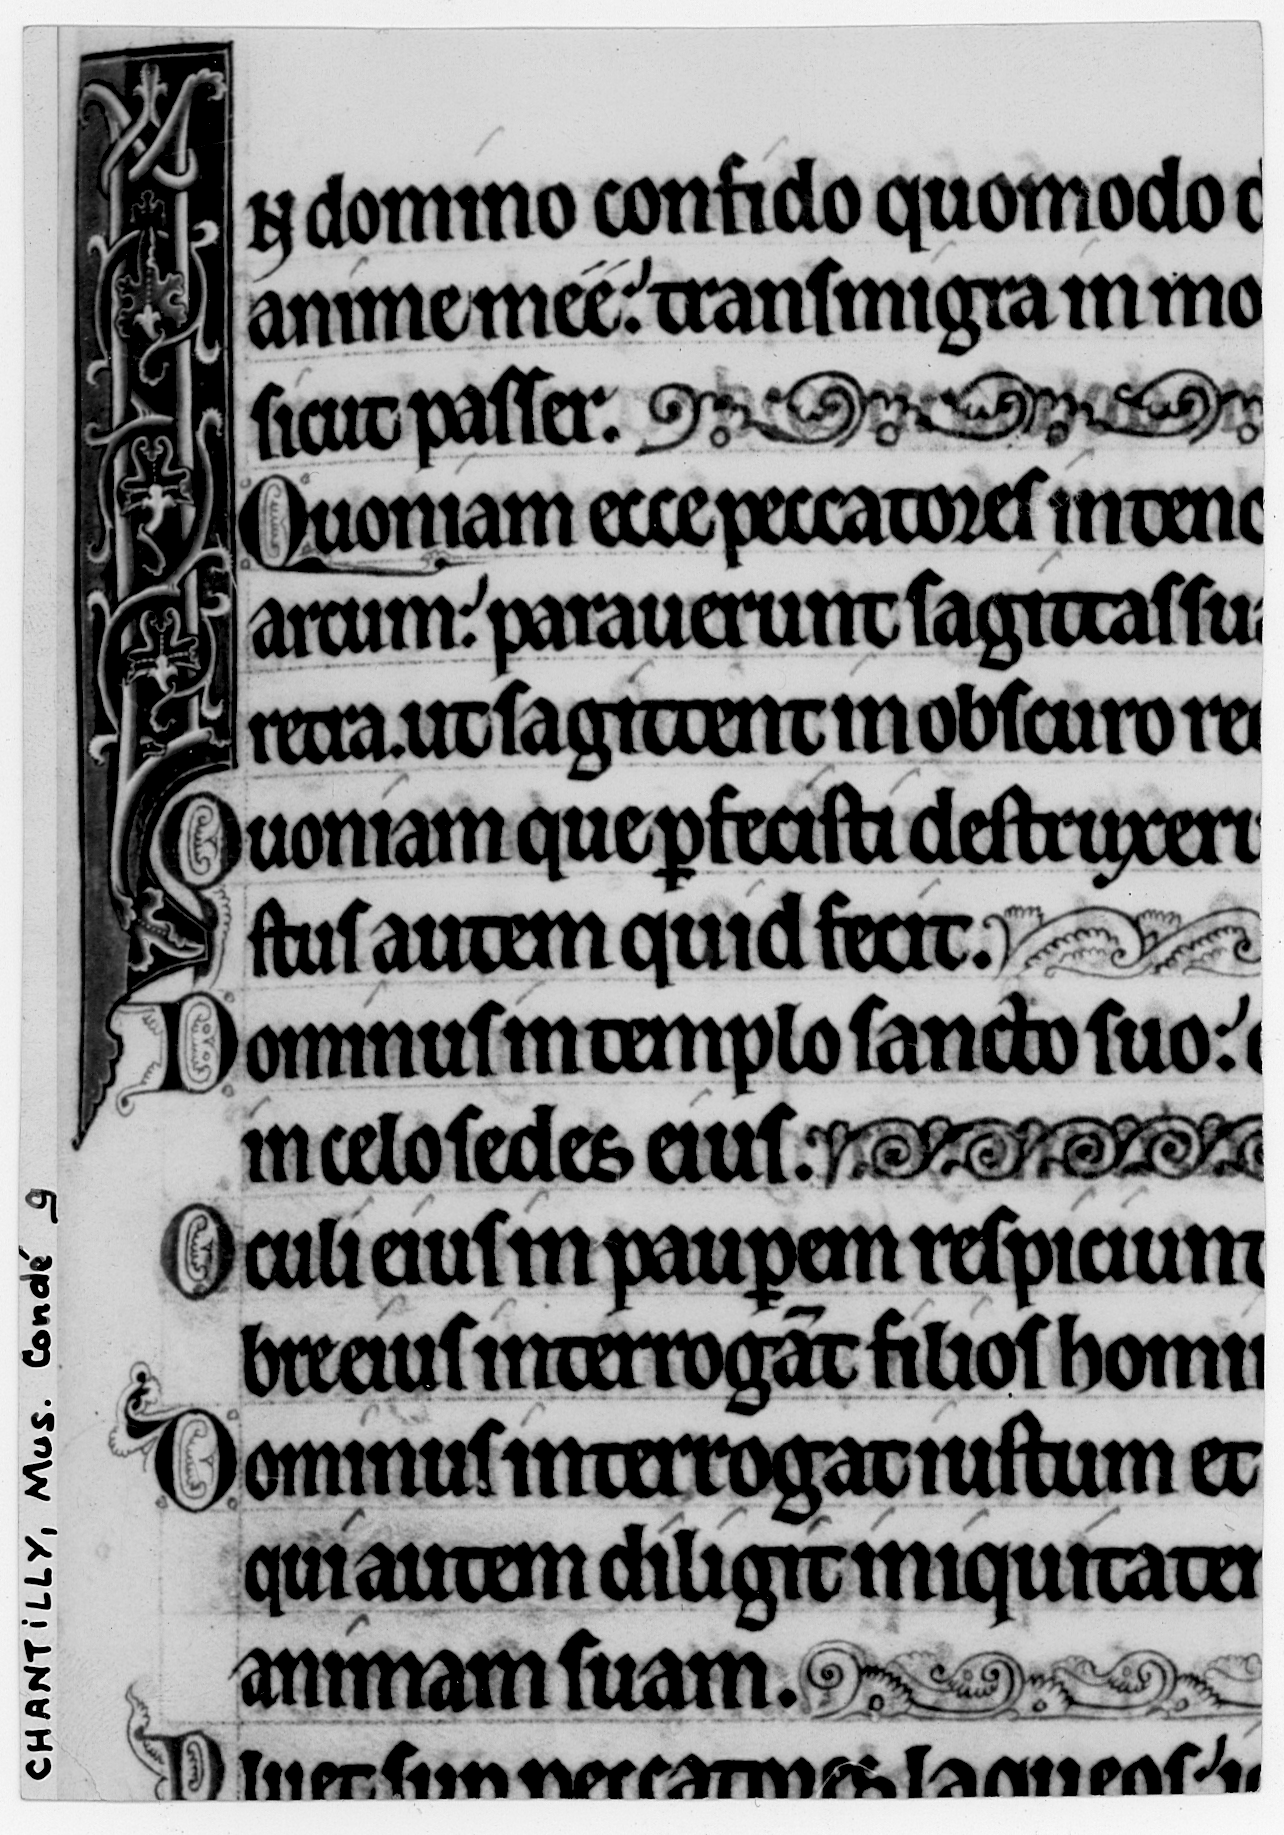 IN domino confido quomodo d
anime meę: transmigra in mo
sicut passer.
Quoniam ecce peccatores intend
arcum: parauerunt sagittas sua
retra. ut sagittent in obscuro rec
Quoniam que ꝑfecisti destruxeru
stus autem quid fecit.
Dominus in templo sancto suo: d
in celo sedes eius.
Oculi eius in pauꝑem respiciunt
bre eius interrogāt filios homin
Dominus interrogat iustum et
qui autem diligit iniquitatem
animam suam.
Pluet sup peccatores laqueos: i
CHANTILLY, Mus. Condé 9